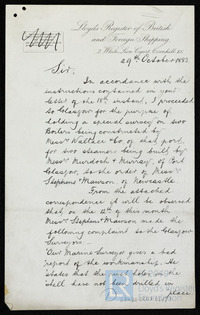 Lloyd's Register of British
and Foreign Shipping,
2, White Lion Court, Cornhill, E.C.
29th October 1883
Sir,
In accordance with the
instructions contained in your
letter of the 18th instant, I proceeded
to Glasgow for the purpose of
holding a special survey on two
Boilers being constructed by
Messrs Wallace & Co of that port
for two steamers being built by
Messrs Murdoch & Murray, of Port
Glasgow, to the order of Messrs
Stephens & Mawson of Newcastle
From the attached
correspondence it will be observed
that on the 12th of this month
Messrs Stephens & Mawson made the
following complaint to the Glasgow
Surveyors—
"Our Marine Surveyor gives a bad
report of the workmanship. He
states that the rivet holes in the
shell have not been drilled in
place